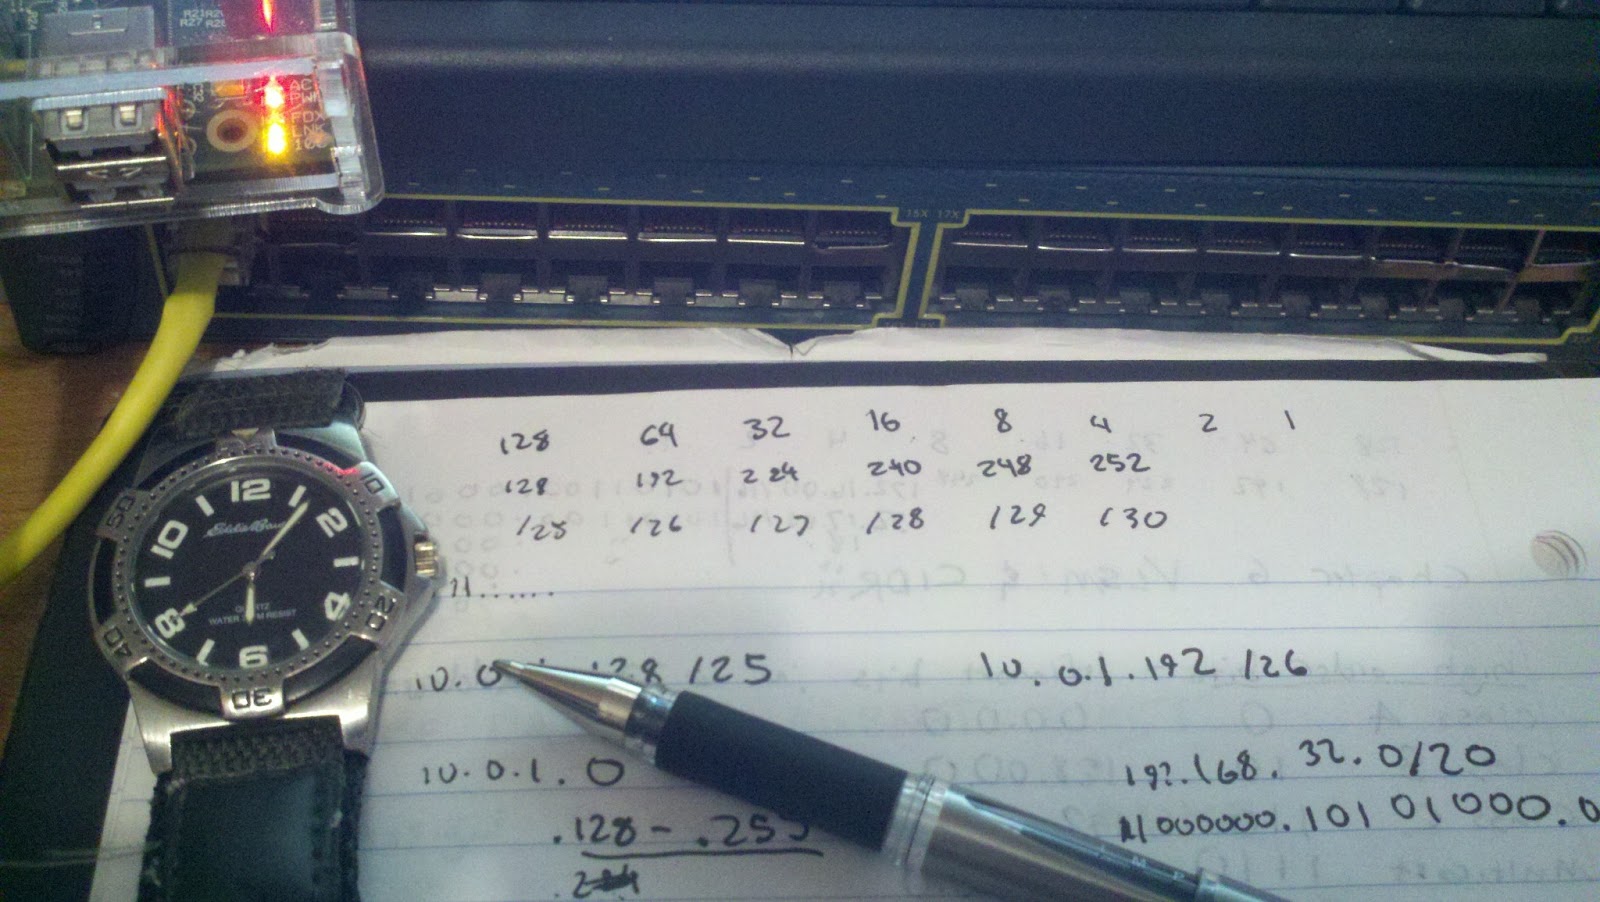 R21
R27 R28
AC
PWR
FDX
LNK
10
15X 17X
128 64 32 16 8 4 2 1
128 192 224 240 248 252
/25 /26 /27 /28 /29 /30
10.0. 128 /25 10.0.1.192 /26
10.0.1.0 192.168.32.0/20
.128 - .255 11000000.10101000.0
12 1 2 4 6 8 10
10 20 30 40 50
Eddie Bauer
QUARTZ
WATER RESIST